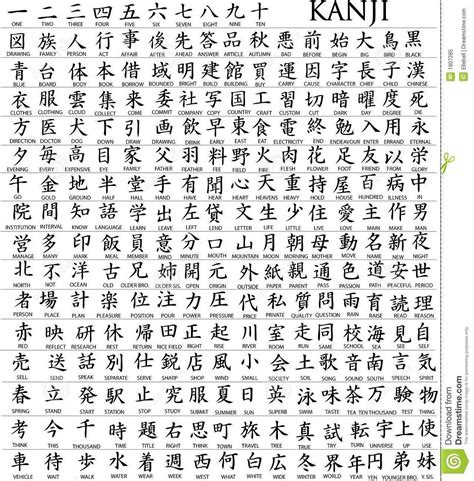 一 二 三 四 五 六 七 八 九 十 KANJI
ONE TWO THREE FOUR FIVE SIX SEVEN EIGHT NINE TEN
図 族 人 行 事 後 先 答 古 秋 悪 前 始 大 鳥 黒
DRAWING FAMILY PERSON ACT AFFAIR AFTER AHEAD ANSWER ANCIENT AUTUMN BAD BEFORE BEGIN BIG BIRD BLACK
青 台 体 本 借 域 明 建 館 買 運 因 字 長 子 漢
BLUE BOARD BODY BOOK BORROW BRIGHT BUILD BUILDING BUY CARRY CAUSE CHARACTER CHIEF CHILD CHINESE
衣 服 雲 集 来 委 社 写 国 工 習 切 暗 曜 度 死
CLOTHES CLOTHING CLOUD COLLECT COME COMMIT COMPANY COPY COUNTRY CRAFT CUSTOM CUT DARK DAY DEGREE DIE
方 医 犬 下 引 画 飲 早 東 食 電 終 勉 入 用 永
DIRECTION DOCTOR DOG DOWN DRAW DRAWING DRINK EARLY EAST EAT ELECTRICITY END ENDEAVOUR ENTER ERRAND ETERNAL
夕 毎 高 目 家 父 羽 料 野 火 魚 花 足 友 以 栄
EVENING EVERY HIGH EYE FAMILY FATHER FEATHER FEE FIELD FIRE FISH FLOWER FOOT FRIEND FROM GLORY
午 金 地 半 堂 手 有 聞 心 天 重 持 屋 百 病 中
GO GOLD GROUND HALF HALL HAND HAVE HEAR HEART HEAVEN HEAVY HOLD HOUSE HUNDRED ILLNESS IN
院 間 知 語 学 出 左 貸 文 生 少 住 愛 主 作 男
INSTITUTION INTERVAL KNOW LANGUAGE LEARN LEAVE LEFT LEND LETTER LIFE LITTLE LIVE LOVE MAIN MAKE MAN
営 多 印 飯 員 意 分 肉 山 月 朝 母 動 名 新 夜
MANAGE MANY MARK MEAL MEMBER MIND MINUTE MEAT MOUNTAIN MONTH MORNING MOTHER MOVE NAME NEW NIGHT
北 不 洋 古 兄 姉 開 元 外 紙 親 通 色 道 安 世
NORTH NOT OCEAN OLD OLDER BRO. OLDER SIS. OPEN ORIGIN OUTSIDE PAPER PARENT PASS COLOR PATH PEACEFUL PERIOD
者 場 計 楽 位 注 力 圧 代 私 質 問 雨 育 読 理
PERSON PLACE PLAN PLEASURE POSITION POUR POWER PRESSURE PERIOD PRIVATE QUALITY QUESTION RAIN RAISE READ REASON
赤 映 研 休 帰 田 正 起 川 室 走 同 校 海 見 自
RED REFLECT RESEARCH REST RETURN RICE FIELD RIGHT RISE RIVER ROOM RUN SAME SCHOOL SEA SEE SELF
売 送 話 別 仕 鋭 店 風 小 会 土 歌 音 南 言 気
SELL SEND SPEAK SEPARATE SERVE SHARP SHOP WIND SMALL SOCIETY SOIL SONG SOUND SOUTH SPEECH SPIRIT
春 立 発 駅 止 究 服 夏 日 英 泳 味 茶 万 験 物
SPRING STAND START STATION STOP STUDY SUBMIT SUMMER SUN SUPERB SWIM TASTE TEA TEN THOUSAND TEST THING
考 今 千 時 題 右 思 町 旅 木 真 試 転 宇 上 使
THINK THIS THOUSAND TIME TITLE RIGHT THINK TOWN TRAVEL TREE TRUE TRY TURN UNIVERSE UP USE
車 待 歩 水 着 週 西 何 白 広 冬 業 年 円 弟 妹
VEHICLE WAIT WALK WATER WEAR WEEK WEST WHAT WHITE WIDE WINTER WORK YEAR YEN YOUNGER BRO. YOUNGER SIS.
Download from
Dreamstime.com